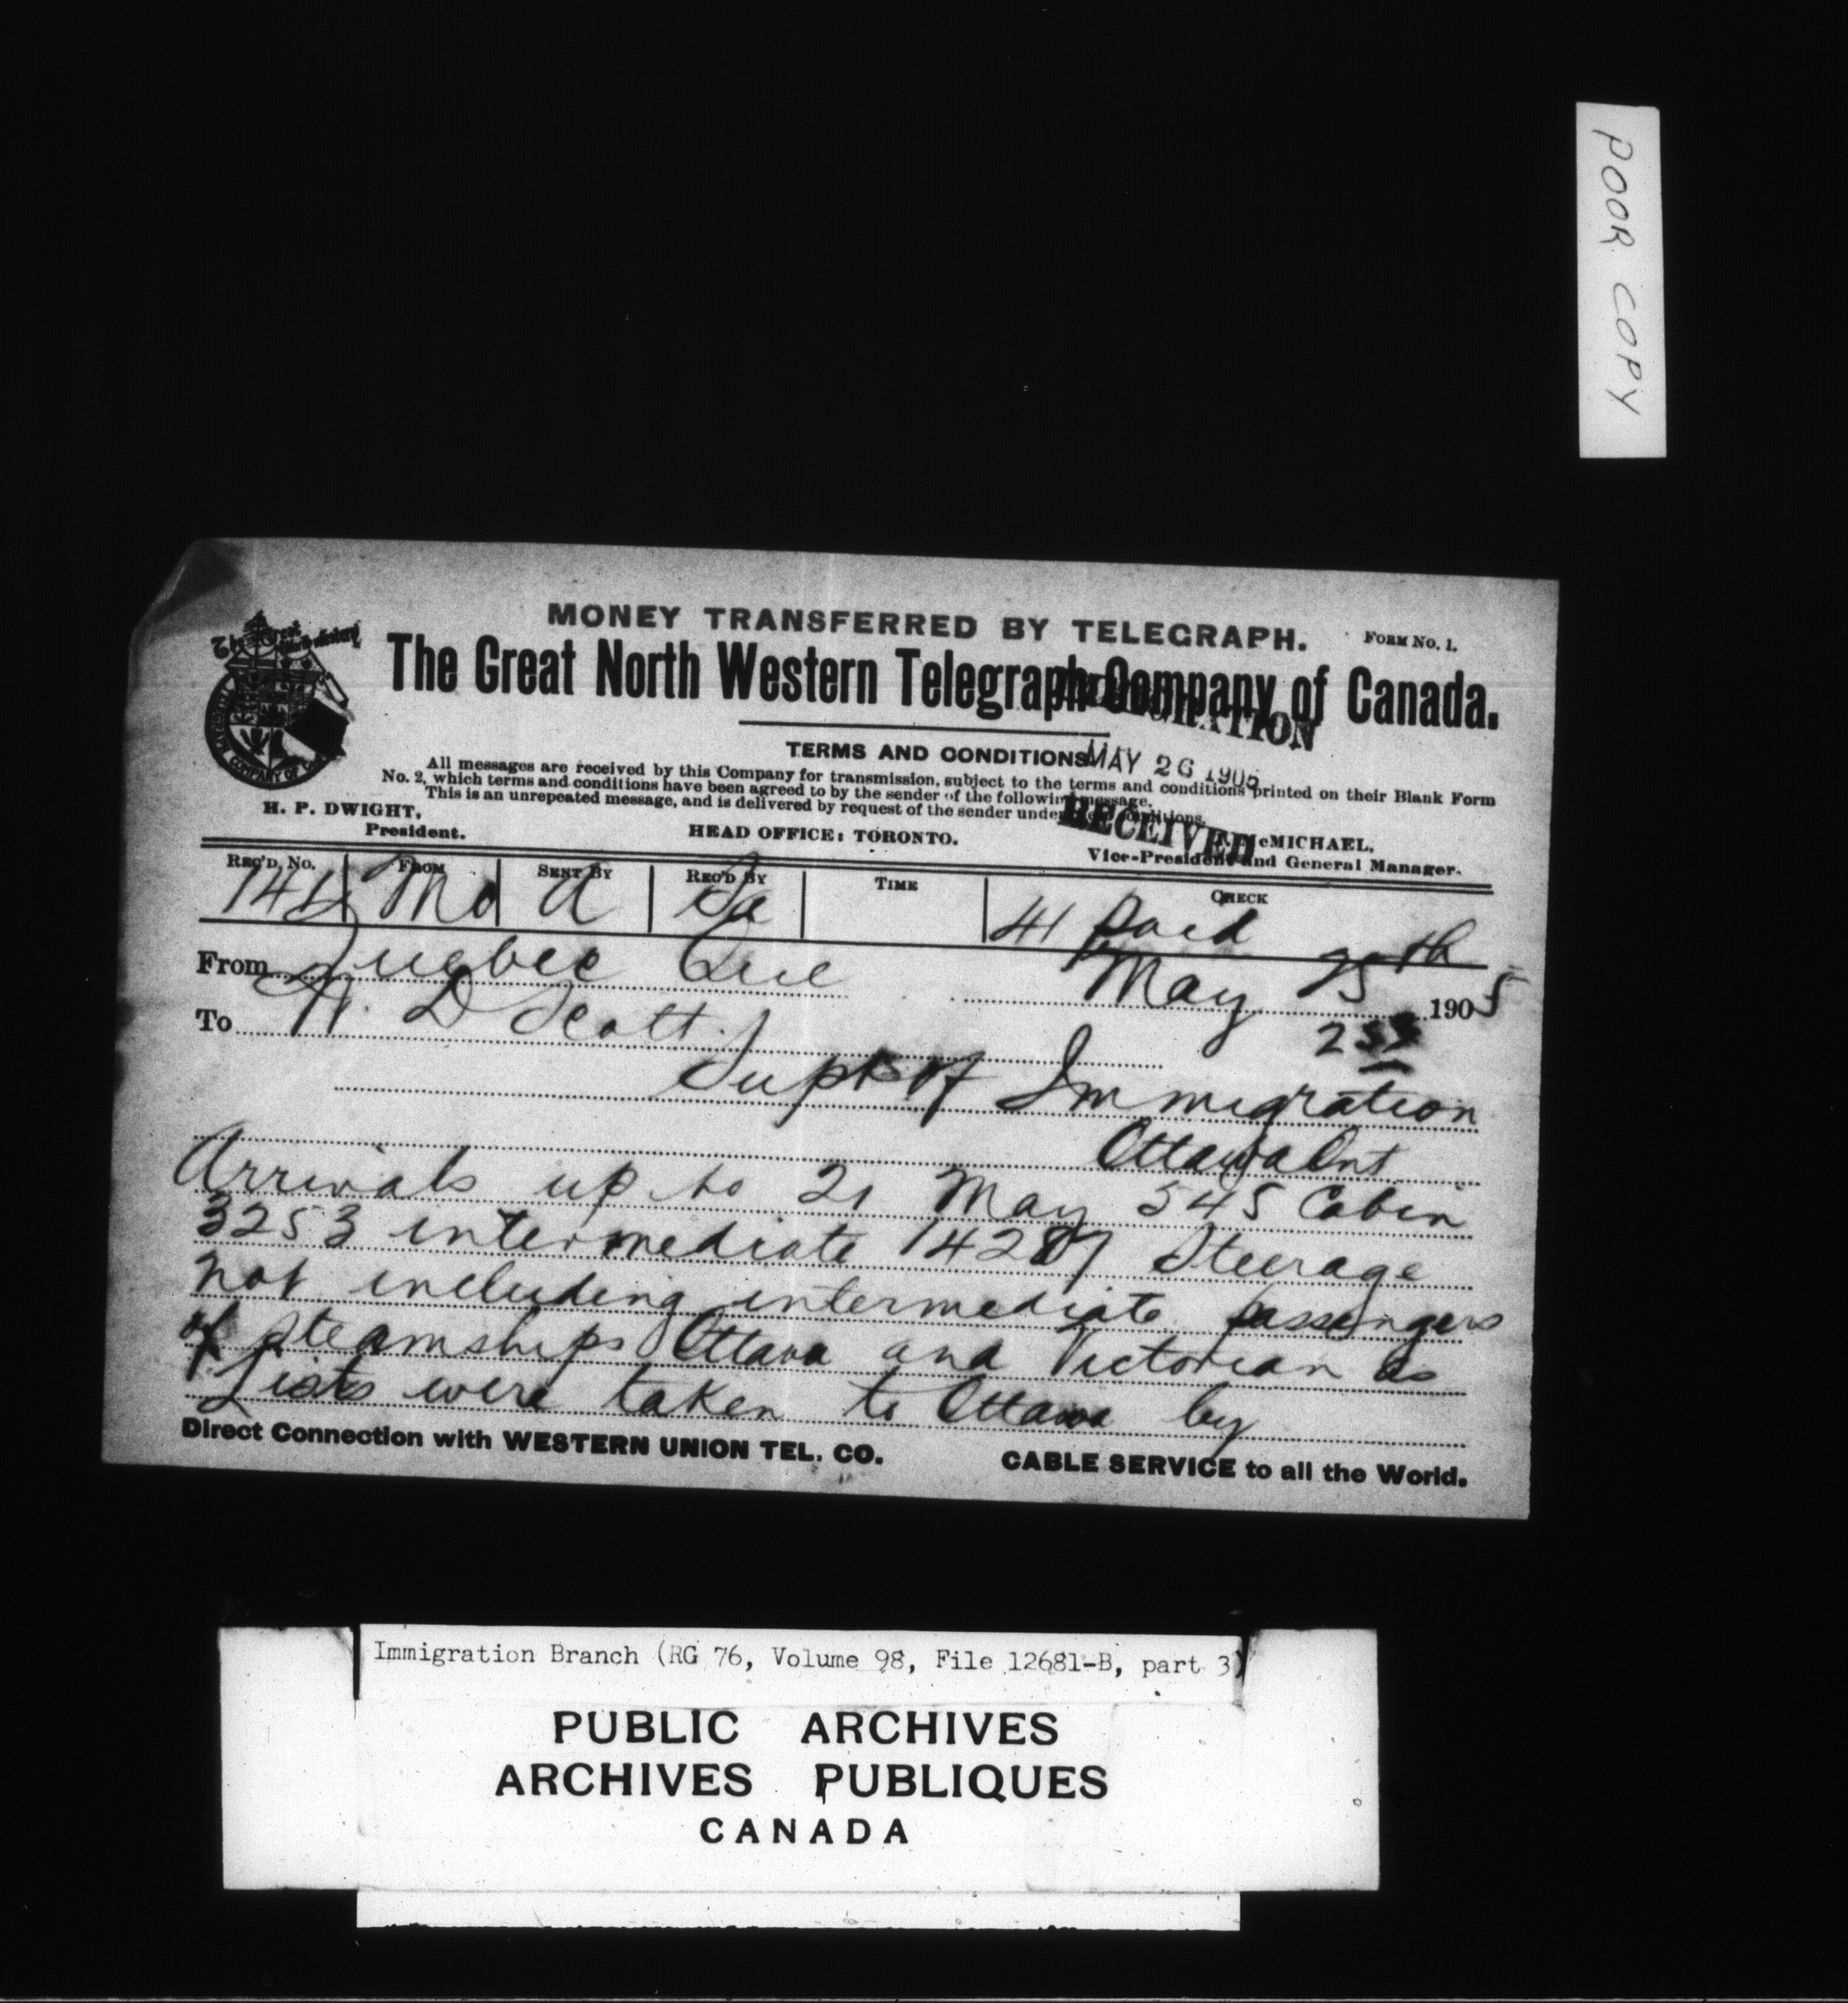 POOR COPY
MONEY TRANSFERRED BY TELEGRAPH. FORM No. 1.
The Great North Western Telegraph Company of Canada.
IMMIGRATION
TERMS AND CONDITIONS
MAY 26 1905
All messages are received by this Company for transmission, subject to the terms and conditions printed on their Blank Form
No. 2, which terms and conditions have been agreed to by the sender of the following message.
This is an unrepeated message, and is delivered by request of the sender under these conditions.
RECEIVED
H. P. DWIGHT, President.
HEAD OFFICE: TORONTO.
McMICHAEL, Vice-President and General Manager.
REC'D, No. FROM SENT BY REC'D BY TIME CHECK
Mo a 41 Paid
From Quebec Que May 25th 1905
To W. D Scott
Supt of Immigration
Ottawa Ont
Arrivals up to 21 May 545 Cabin
3253 intermediate 14287 Steerage
not including intermediate passengers
of steamships Ottawa and Victorian as
Lists were taken to Ottawa by
Direct Connection with WESTERN UNION TEL. CO. CABLE SERVICE to all the World.
Immigration Branch (RG 76, Volume 98, File 12681-B, part 3)
PUBLIC ARCHIVES
ARCHIVES PUBLIQUES
CANADA